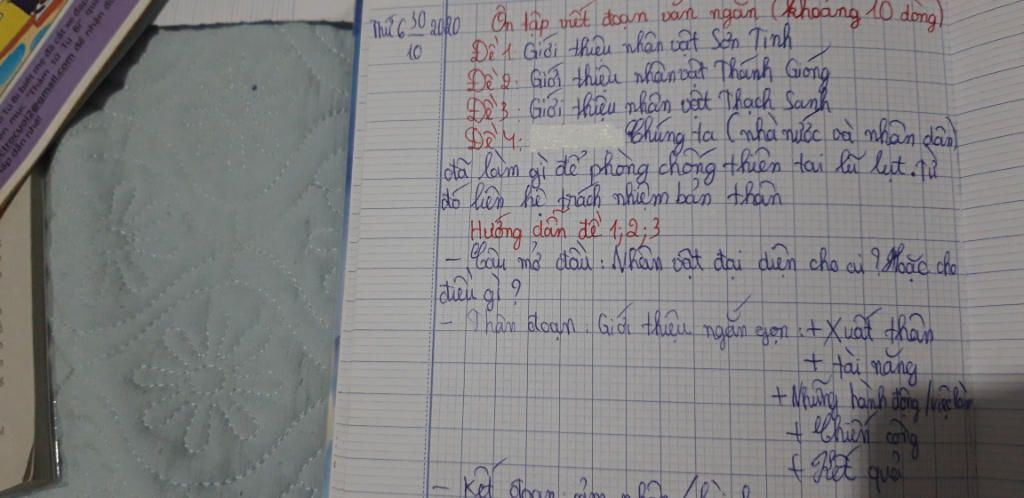 Thứ 6 30/10 2020 Ôn tập viết đoạn văn ngắn (khoảng 10 dòng)
Đề 1: Giới thiệu nhân vật Sơn Tinh
Đề 2: Giới thiệu nhân vật Thánh Gióng
Đề 3: Giới thiệu nhân vật Thạch Sanh
Đề 4: Chúng ta (nhà nước và nhân dân)
đã làm gì để phòng chống thiên tai lũ lụt. Từ
đó liên hệ trách nhiệm bản thân
Hướng dẫn đề 1; 2; 3
- Câu mở đầu: Nhân vật đại diện cho ai? Hoặc cho
điều gì?
- Thân đoạn: Giới thiệu ngắn gọn: + Xuất thân
+ tài năng
+ Những hành động / việc làm
+ Chiến công
+ Kết quả
- Kết đoạn: cảm nhận